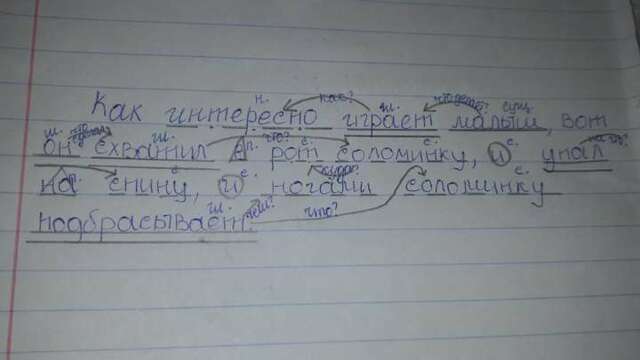 Как интересно играет малыш, вот
он схватил в рот соломинку, и упал
на спину, и ногами соломинку
подбрасывает.
н. как? гл. что делает? сущ.
м. гл. п. что? с. с. с.
п. с. с. с.
гл. чем? что?